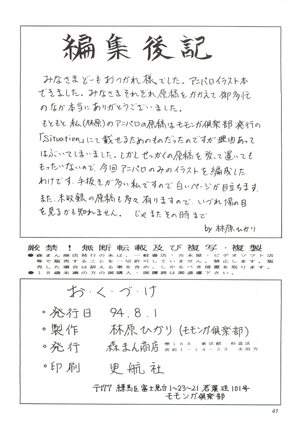 編集後記
みなさまどーもおつかれ様でした。アニパロイラスト本
できました。みなさまそれぞれ原稿をかかえて御多忙
のなか本当にありがとうございました。
もともと私(林原)のアニパロの原稿はモモンガ倶楽部発行の
「Situation」にて載せるためのものだったのですが理由あって
はぶいてしまいました。しかしせっかくの原稿を放って置いても
もったいないので、今回アニパロのみのイラストを編成した
わけです。手抜きが多い私ですので白いページが目立ちます。
また、未収録の原稿も多々有りますので、いづれ陽の目
を見るかも知れません。じゃまたその時まで
by 林原ひかり
厳禁!無断転載及び複写・複製
お・く・づ・け
発行日 94.8.1
製作 林原ひかり(モモンガ倶楽部)
発行 森まん商店
印刷 更航社
〒177 練馬区富士見台1~23~21 若葉荘101号
モモンガ倶楽部
41